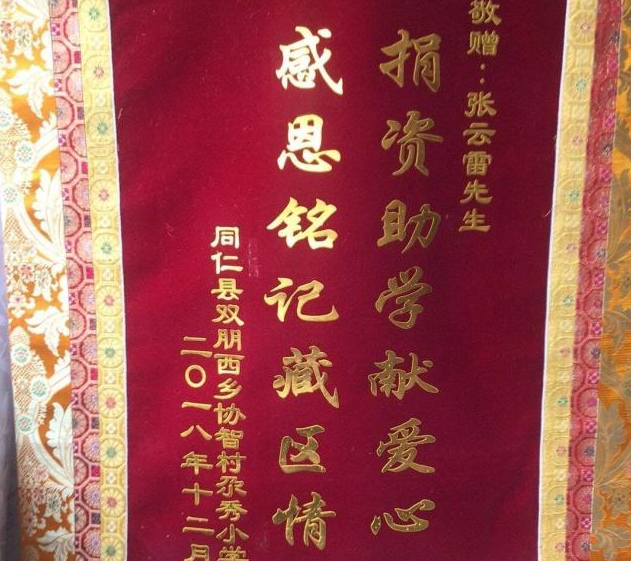 敬赠：张云雷先生
捐资助学献爱心
感恩铭记藏区情
同仁县双朋西乡协智村尕秀小学
二〇一八年十二月